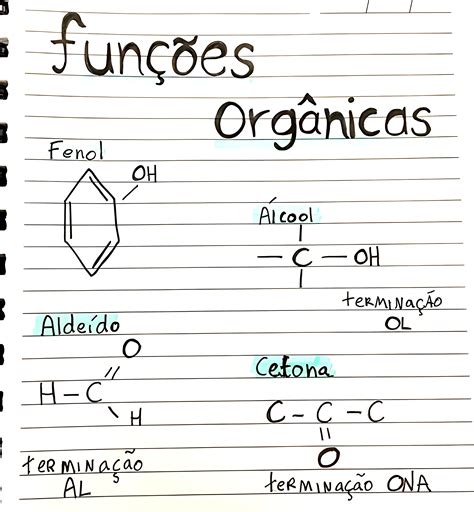 funções
Orgânicas
Fenol
OH
Álcool
— C — OH
terminação
OL
Aldeído
O
//
H – C
\ H
terminação
AL
Cetona
C – C – C
||
O
terminação ONA